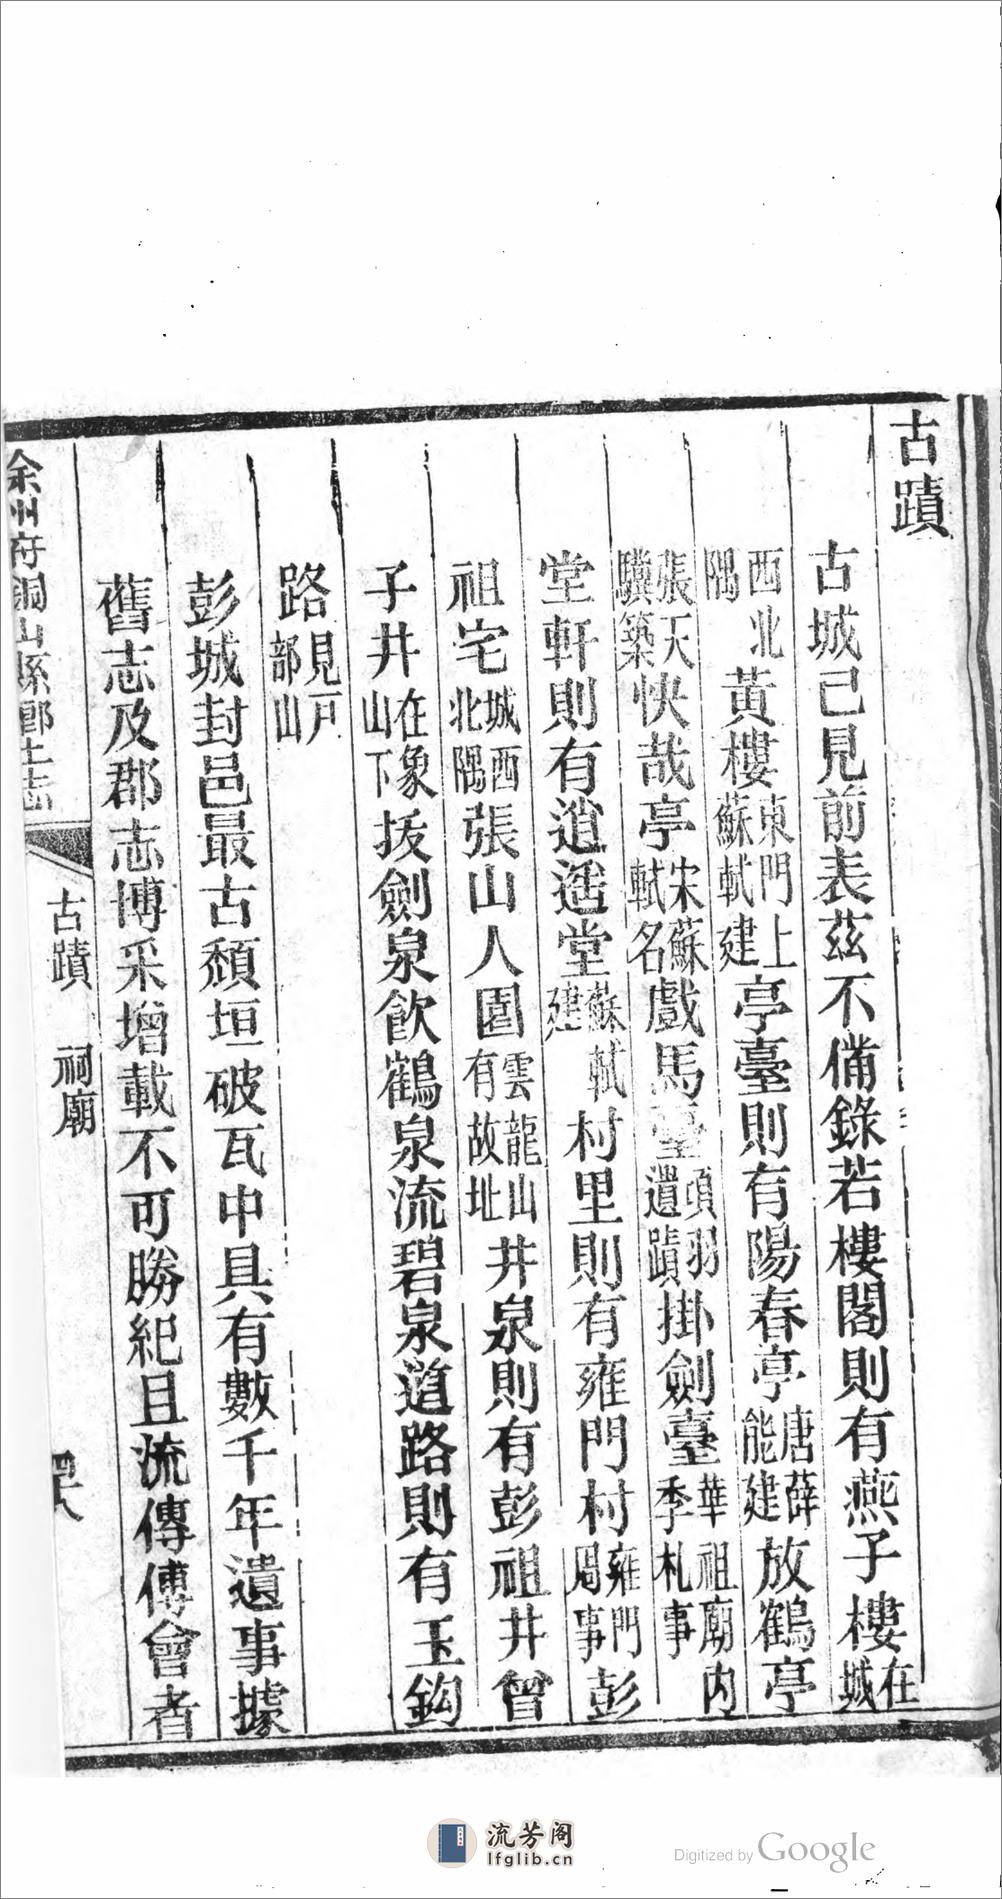 古蹟
古城已見前表茲不備錄若樓閣則有燕子樓在城
西北隅黃樓東門上蘇軾建亭臺則有陽春亭唐薛能建放鶴亭
張天驥築快哉亭宋蘇軾名戲馬臺項羽遺蹟掛劍臺華祖廟內季札事
堂軒則有逍遙堂蘇軾建村里則有雍門村雍門周事彭
祖宅城西北隅張山人園雲龍山有故址井泉則有彭祖井曾
子井在象山下拔劍泉飲鶴泉流碧泉道路則有玉鈎
路見戶部山
彭城封邑最古頹垣破瓦中具有數千年遺事據
舊志及郡志博采增載不可勝紀且流傳傅會者
徐州府銅山縣鄉土志
古蹟 祠廟
四十八
流芳阁
lfglib.cn
Digitized by Google